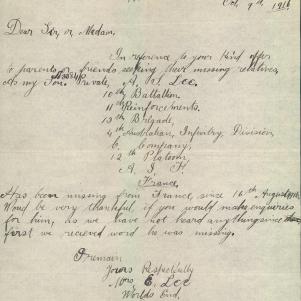 Oct 9th 1916
Dear Sir, or, Madam,
In reference to your kind offer
to parents or friends seeking their missing relatives,
As my Son. Private, A. J. Lee.
10th Battalion
11th Reinforcements.
13th Brigade,
4th Australian, Infentry Division
C. Company,
12th Platoon,
A. I. F.
France,
Has been missing from France, since 16th August
Woud be very thankful if you would make enqueries
for him, as we have not heard anything since
first we recieved word he was missing.
I remain
Yours Respectfully
Mrs E. Lee
Worlds End,